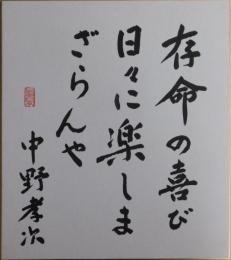 存命の喜び
日々に楽しま
ざらんや
中野孝次